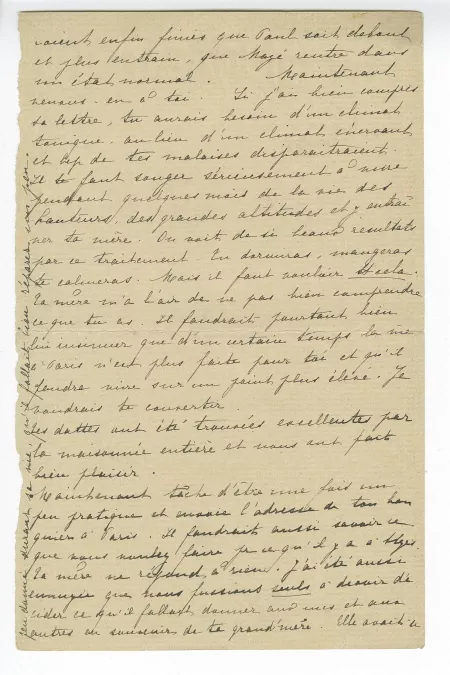 soient enfin finies que Paul soit debout
et plus entrain, que Majé rentre dans
un état normal. Maintenant
venons-en à toi. Si j'ai bien compris
ta lettre, tu aurais besoin d'un climat
tonique au lieu d'un climat énervant
et bcp de tes malaises disparaitraient.
Il te faut songer sérieusement à vivre
pendant quelques mois de la vie des
hauteurs, des grandes altitudes et y entraî
ner ta mère. On voit de si beaux résultats
par ce traitement. Tu dormiras, mangeras
te calmeras. Mais il faut vouloir cela.
Ta mère m'a l'air de ne pas bien comprendre
ce que tu as. Il faudrait pourtant bien
lui insinuer que d'un certain temps la vie
à Paris n'est plus faite pour toi et qu'il
faudra vivre sur un point plus élevé. Je
voudrais te convertir.
Les dattes ont été trouvées excellentes par
la maisonnée entière et nous ont fait
bien plaisir.
Maintenant tâche d'être une fois un
peu pratique et envoie l'adresse de ton ban
quier à Paris. Il faudrait aussi savoir ce
que vous voulez faire pr ce qu'il y a à
Ta mère ne répond à rien. J'ai été aussi
ennuyée que nous fussions seuls à devoir dé
cider ce qu'il fallait donner aux uns et aux
autres en souvenir de ta grand'mère. Elle avait
donné durant sa vie qu'il fallait bien réparer un peu.